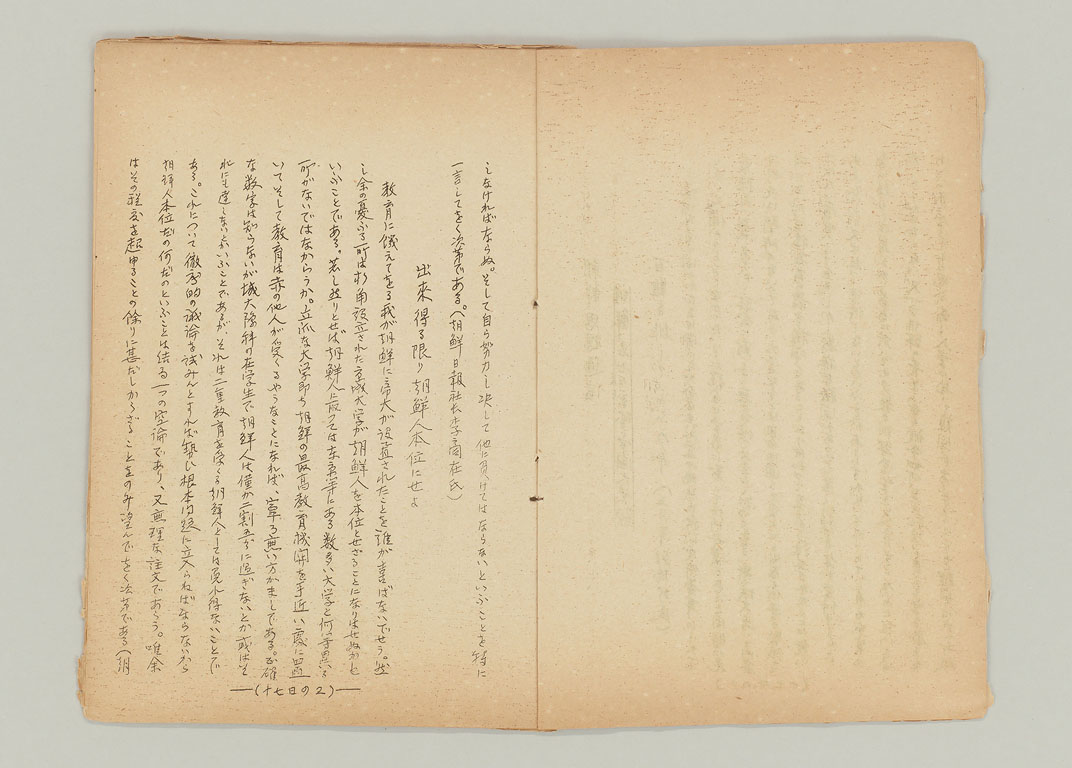 しなければならぬ。そして自ら努力し決して他に負けてはならないといふことを特に
一言してをく次第である。(朝鮮日報社長李商在氏)
出来得る限り朝鮮人本位にせよ
教育に餓えてをる我が朝鮮に帝大が設置されたことを誰が喜ばないでせう。然
し余の憂ふる所は折角設立された京城大学が朝鮮人を本位とせざることになりはせぬかと
いふことである。若し然りとせば朝鮮人に取っては東京等にある数多い大学と何等異る
所がないではなからうか。立派な大学即ち朝鮮の最高教育機関を手近い處に置
いてそして教育は赤の他人が受くるやうなことになれば、寧ろ無い方がましである。正確
な数字は知らないが城大豫科の在学生で朝鮮人は僅か二割五分に過ぎないとか或はそ
れにも達しないといふことであるが、それは二重教育を受くる朝鮮人としては免れ得ないことで
ある。これについて徹底的の議論を試みんとすれば勢ひ根本問題に立入らねばならないから
朝鮮人本位だの何だのといふことは結局一つの空論であり、又無理な注文であらう。唯余
はその程度を超ゆることの余りに甚だしからざることをのみ望んでをく次第である(朝
―(十七日の2)―